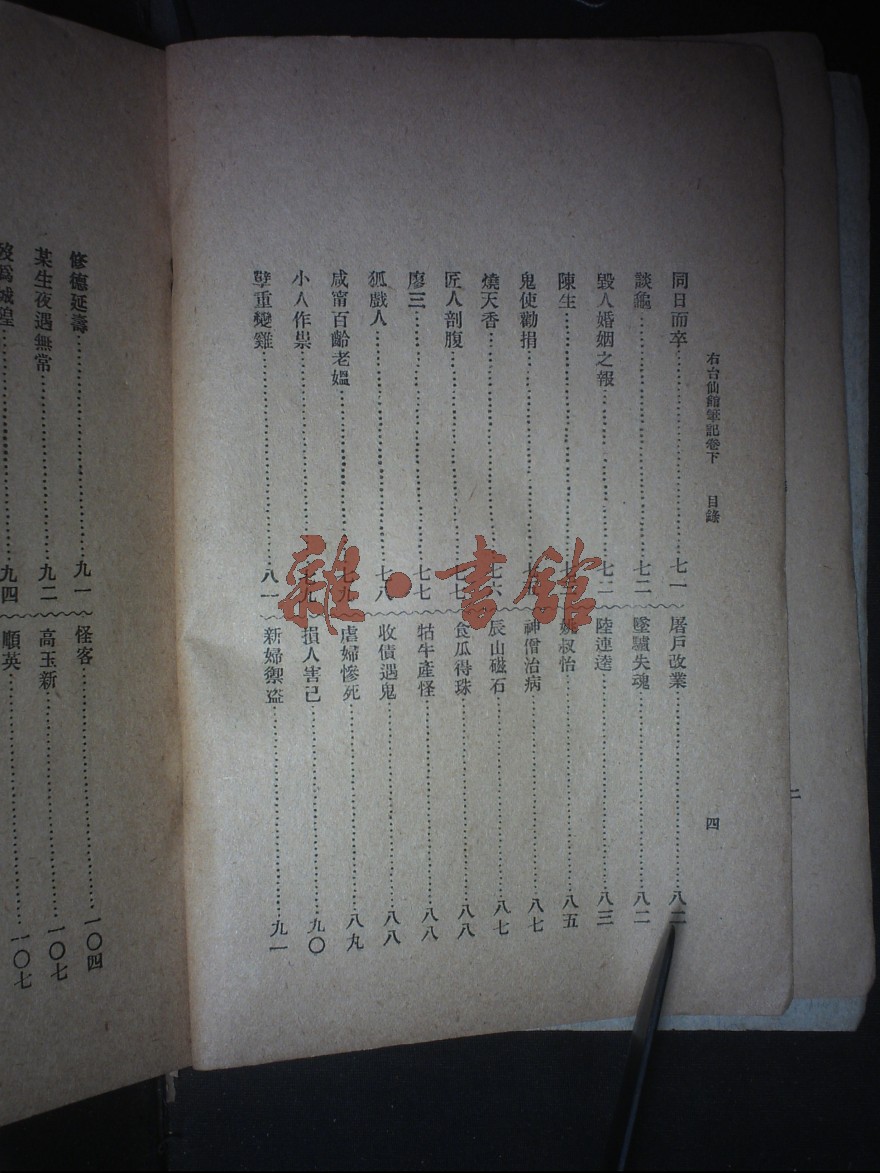 右台仙館筆記卷下 目錄 四
同日而卒 七一
談龜 七二
毀人婚姻之報 七二
陳生
鬼使勸捐
燒天香 七六
匠人剖腹 七七
廖三 七七
狐戲人 七八
咸甯百齡老媼 七九
小人作祟 七九
孽重變雞 八一
屠戶改業 八二
墜驢失魂 八二
陸連逵 八三
姚叔怡 八五
神僧治病 八七
辰山磁石 八七
食瓜得珠 八八
牯牛產怪 八八
收債遇鬼 八八
虐婦慘死 八九
損人害己 九〇
新婦禦盜 九一
修德延壽 九一
某生夜遇無常 九二
歿爲城隍 九四
怪客 一〇四
高玉新 一〇七
順英 一〇七
二
雜·書館